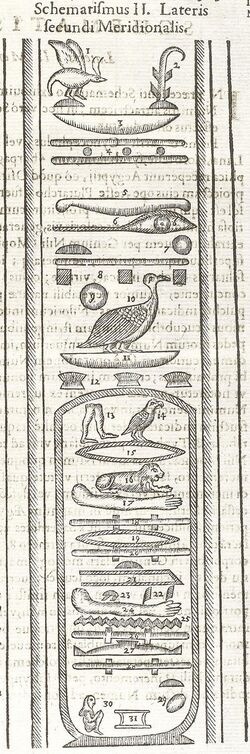 Schematiſmus II. Lateris
ſecundi Meridionalis.
1
2
3
4
5
7
8
9
10
11
12
13 14
15
16
17
18
19
20
21
23 22
24
25
26
27
28
30 29
31